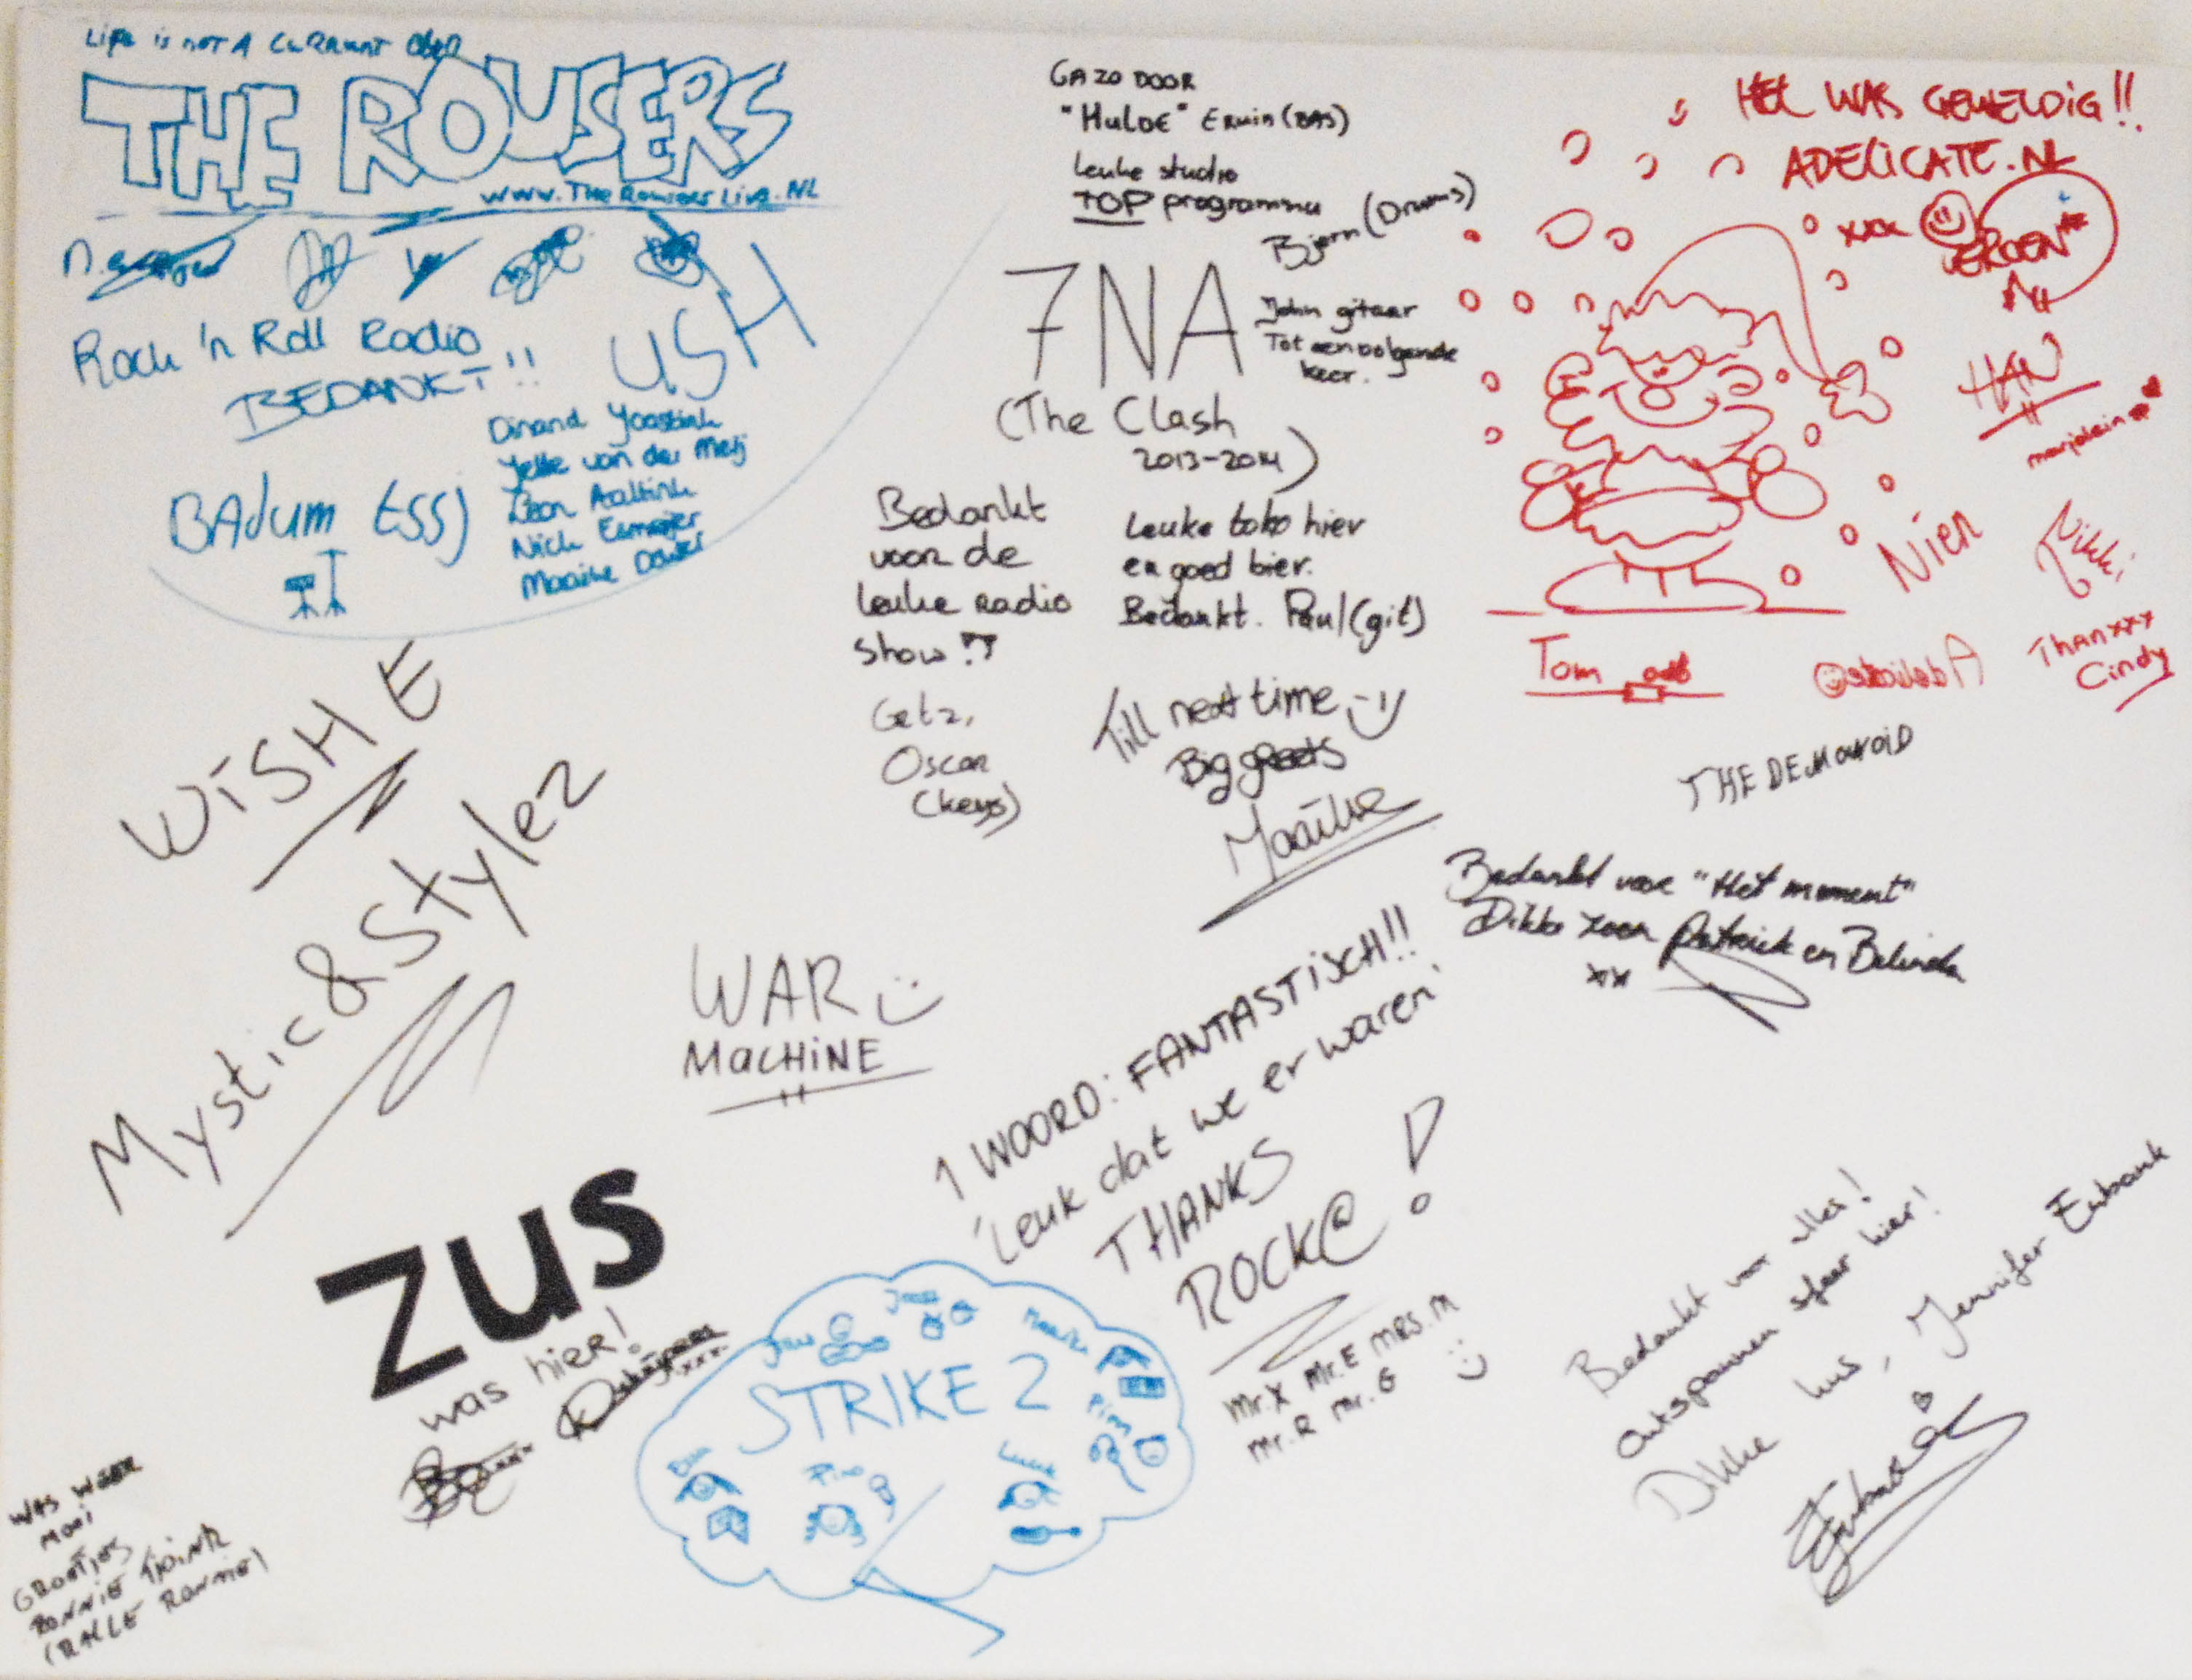 Life is not A
THE ROUSERS
www.TheRousersLive.NL
Rock 'n Roll Radio
BEDANKT!!
USH
Dinand
Jelle van der Meij
Leon Aaltink
Nick
Maaike
BAdum tss)
GA ZO DOOR
"Hulde" Erwin (BAS)
Leuke studio
TOP programma
Bjorn (Drums)
7NA
John gitaar
Tot een volgende
keer.
(The Clash
2013-2014)
Bedankt
voor de
leuke radio
show!!
Getz,
Oscar
(keys)
Leuke toko hier
en goed bier.
Bedankt. Paul (git)
Till next time :-)
Big greets
Maaike
HET WAS GEWELDIG!!
ADELICATE.NL
xxx
JEROEN
HAN
marjolein
Nien
Nikki
Tom
Thanxxx
Cindy
WiSH E
Mystic & Stylez
WAR
MacHiNE
THE DEMONOID
Bedankt voor "Het moment"
Dikke zoen Patrick en Belinda
xx
1 WOORD: FANTASTiSCH!!
'Leuk dat we er waren'
THANKS
ROCK@!
Mr.X Mr.E MRS.M
Mr.R Mr.G
ZUS
was hier!
STRIKE 2
Pim
WAS WEER
MOOI
GROETJES
RONNIE
(KALLE RONNIE)
Bedankt voor alles!
ontspannen sfeer hier!
Dikke kus, Jennifer Ewbank